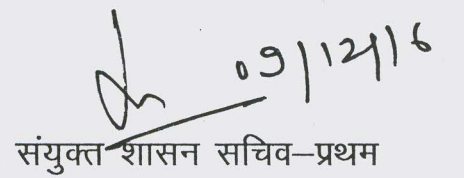 09/12/16
संयुक्त शासन सचिव–प्रथम